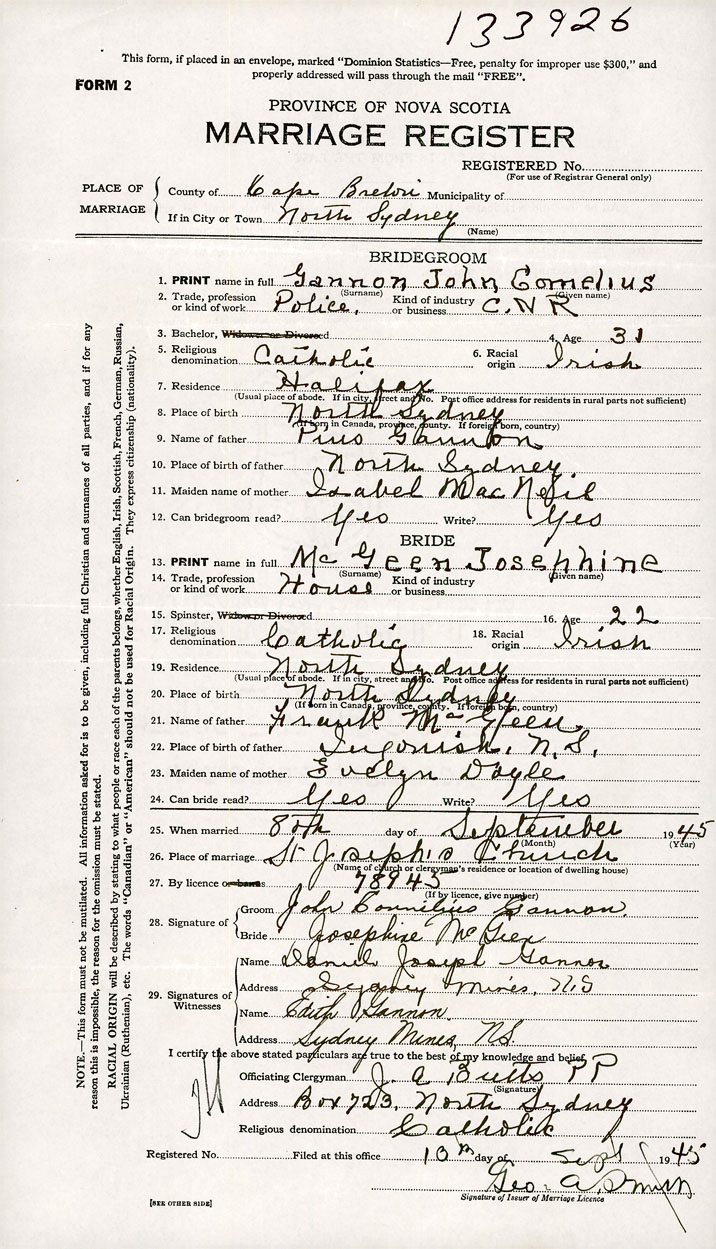 133926
This form, if placed in an envelope, marked "Dominion Statistics—Free, penalty for improper use $300," and
properly addressed will pass through the mail "FREE".
FORM 2
PROVINCE OF NOVA SCOTIA
MARRIAGE REGISTER
REGISTERED No.
(For use of Registrar General only)
PLACE OF MARRIAGE
County of Cape Breton Municipality of
If in City or Town North Sydney
(Name)
BRIDEGROOM
1. PRINT name in full Gannon John Cornelius
(Surname) (Given name)
2. Trade, profession or kind of work Police, Kind of industry or business C.N R
3. Bachelor, Widower or Divorced 4. Age 31
5. Religious denomination Catholic 6. Racial origin Irish
7. Residence Halifax
(Usual place of abode. If in city, street and No. Post office address for residents in rural parts not sufficient)
8. Place of birth North Sydney
(If born in Canada, province, county. If foreign born, country)
9. Name of father Pius Gannon
10. Place of birth of father North Sydney
11. Maiden name of mother Isabel MacNeil
12. Can bridegroom read? Yes Write? Yes
BRIDE
13. PRINT name in full McGeen Josephine
(Surname) (Given name)
14. Trade, profession or kind of work House Kind of industry or business
15. Spinster, Widow or Divorced 16. Age 22
17. Religious denomination Catholic 18. Racial origin Irish
19. Residence North Sydney
(Usual place of abode. If in city, street and No. Post office address for residents in rural parts not sufficient)
20. Place of birth North Sydney
(If born in Canada, province, county. If foreign born, country)
21. Name of father Frank McGeen
22. Place of birth of father Ingonish, N.S.
23. Maiden name of mother Evelyn Doyle
24. Can bride read? Yes Write? Yes
25. When married 8th day of September 1945
(Month) (Year)
26. Place of marriage St Joseph's Church
(Name of church or clergyman's residence or location of dwelling house)
27. By licence or banns 78943
(If by licence, give number)
28. Signature of
Groom John Cornelius Gannon
Bride Josephine McGeen
29. Signatures of Witnesses
Name Daniel Joseph Gannon
Address Sydney Mines, N.S
Name Edith Gannon
Address Sydney Mines, N.S.
I certify the above stated particulars are true to the best of my knowledge and belief.
Officiating Clergyman J. A Butts PP
(Signature)
Address Box 723, North Sydney
Religious denomination Catholic
Registered No. Filed at this office 10th day of Sept 1945
Geo. A. Smith
Signature of Issuer of Marriage Licence
[SEE OTHER SIDE]
NOTE.—This form must not be mutilated. All information asked for is to be given, including full Christian and surnames of all parties, and if for any
reason this is impossible, the reason for the omission must be stated.
RACIAL ORIGIN will be described by stating to what people or race each of the parents belongs, whether English, Irish, Scottish, French, German, Russian,
Ukrainian (Ruthenian), etc. The words "Canadian" or "American" should not be used for Racial Origin. They express citizenship (nationality).